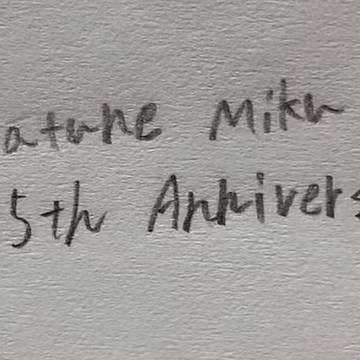 atune Miku
5th Annivers